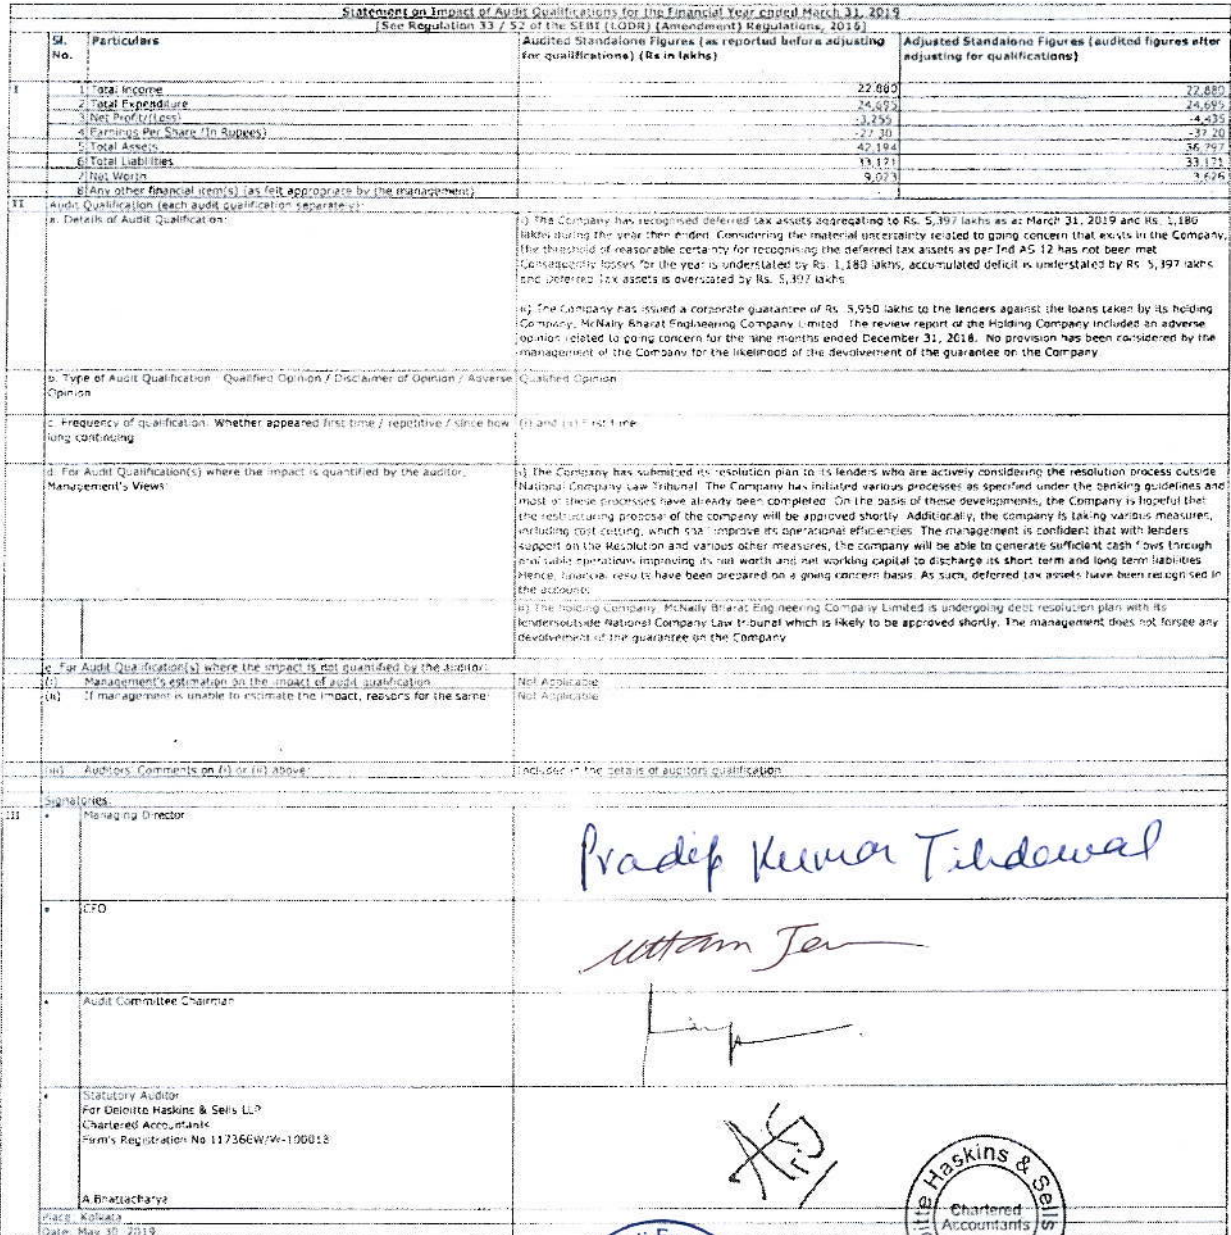 Statement on Impact of Audit Qualifications for the Financial Year ended March 31, 2019
[See Regulation 33 / 52 of the SEBI (LODR) (Amendment) Regulations, 2016]
Sl. No. Particulars Audited Standalone Figures (as reported before adjusting for qualifications) (Rs in lakhs) Adjusted Standalone Figures (audited figures after adjusting for qualifications)
I 1 Total Income 22,880 22,880
2 Total Expenditure 24,695 24,695
3 Net Profit/(Loss) -3,255 -4,435
4 Earnings Per Share (In Rupees) -27.30 -37.20
5 Total Assets 42,194 36,797
6 Total Liabilities 33,171 33,171
7 Net Worth 9,023 3,626
8 Any other financial item(s) (as felt appropriate by the management)
II Audit Qualification (each audit qualification separately):
a. Details of Audit Qualification:
i) The Company has recognised deferred tax assets aggregating to Rs. 5,397 lakhs as at March 31, 2019 and Rs. 1,180
lakhs during the year then ended. Considering the material uncertainty related to going concern that exists in the Company,
the threshold of reasonable certainty for recognising the deferred tax assets as per Ind AS 12 has not been met.
Consequently losses for the year is understated by Rs. 1,180 lakhs, accumulated deficit is understated by Rs. 5,397 lakhs
and Deferred Tax assets is overstated by Rs. 5,397 lakhs
ii) The Company has issued a corporate guarantee of Rs. 5,950 lakhs to the lenders against the loans taken by its holding
Company, McNally Bharat Engineering Company Limited. The review report of the Holding Company included an adverse
opinion related to going concern for the nine months ended December 31, 2018. No provision has been considered by the
management of the Company for the likelihood of the devolvement of the guarantee on the Company
b. Type of Audit Qualification : Qualified Opinion / Disclaimer of Opinion / Adverse
Opinion
Qualified Opinion
c. Frequency of qualification: Whether appeared first time / repetitive / since how
long continuing
(i) and (ii) First time
d. For Audit Qualification(s) where the impact is quantified by the auditor,
Management's Views:
i) The Company has submitted its resolution plan to its lenders who are actively considering the resolution process outside
National Company Law Tribunal. The Company has initiated various processes as specified under the banking guidelines and
most of these processes have already been completed. On the basis of these developments, the Company is hopeful that
the restructuring proposal of the company will be approved shortly. Additionally, the company is taking various measures,
including cost cutting, which shall improve its operational efficiencies. The management is confident that with lenders
support on the Resolution and various other measures, the company will be able to generate sufficient cash flows through
profitable operations improving its net worth and net working capital to discharge its short term and long term liabilities.
Hence, financial results have been prepared on a going concern basis. As such, deferred tax assets have been recognised in
the accounts.
ii) The holding Company, McNally Bharat Engineering Company Limited is undergoing debt resolution plan with its
lendersoutside National Company Law tribunal which is likely to be approved shortly. The management does not forsee any
devolvement of the guarantee on the Company
e. For Audit Qualification(s) where the impact is not quantified by the auditor:
(i) Management's estimation on the impact of audit qualification Not Applicable
(ii) If management is unable to estimate the impact, reasons for the same: Not Applicable
(iii) Auditors' Comments on (i) or (ii) above: Included in the details of auditors qualification
Signatories:
III • Managing Director
Pradip Kumar Tibdewal
• CFO
Uttam
• Audit Committee Chairman
• Statutory Auditor
For Deloitte Haskins & Sells LLP
Chartered Accountants
Firm's Registration No.117366W/W-100018
A.Bhattacharya
Haskins & Sells
Chartered
Accountants
Place: Kolkata
Date: May 30, 2019